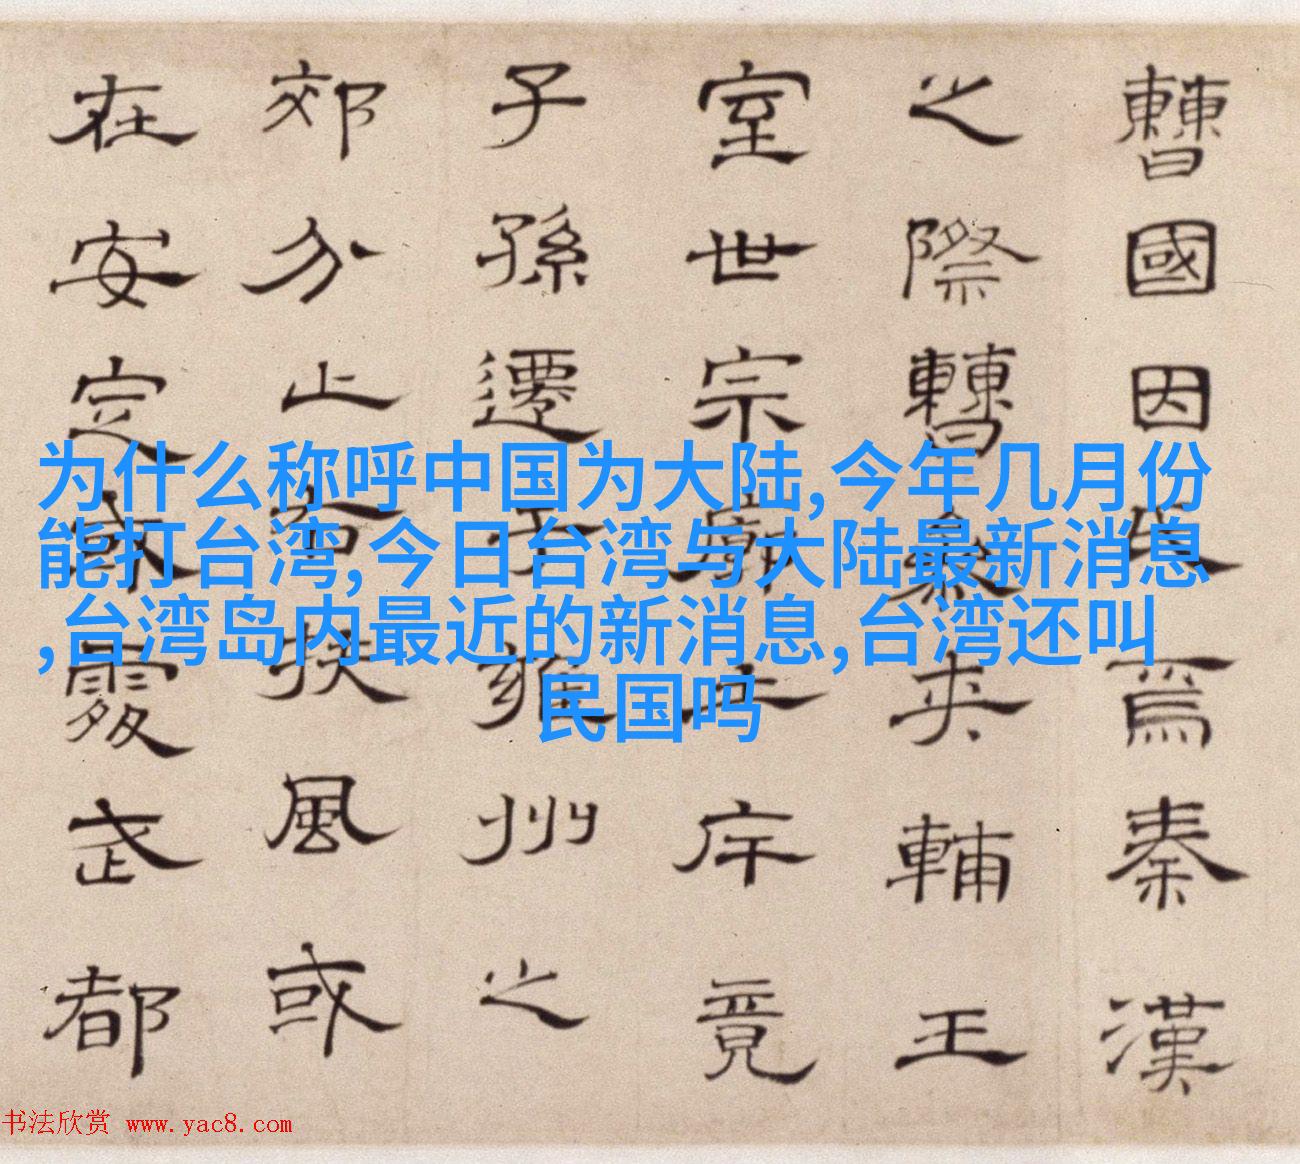 曹國因氏焉秦漢
之際曹參夾輔王
室世宗廓土斥竟
子孫遷于雍州之
郊分止右扶風或
在安定或處武都
为什么称呼中国为大陆,今年几月份
能打台湾,今日台湾与大陆最新消息
,台湾岛内最近的新消息,台湾还叫
民国吗
书法欣赏 www.yac8.com